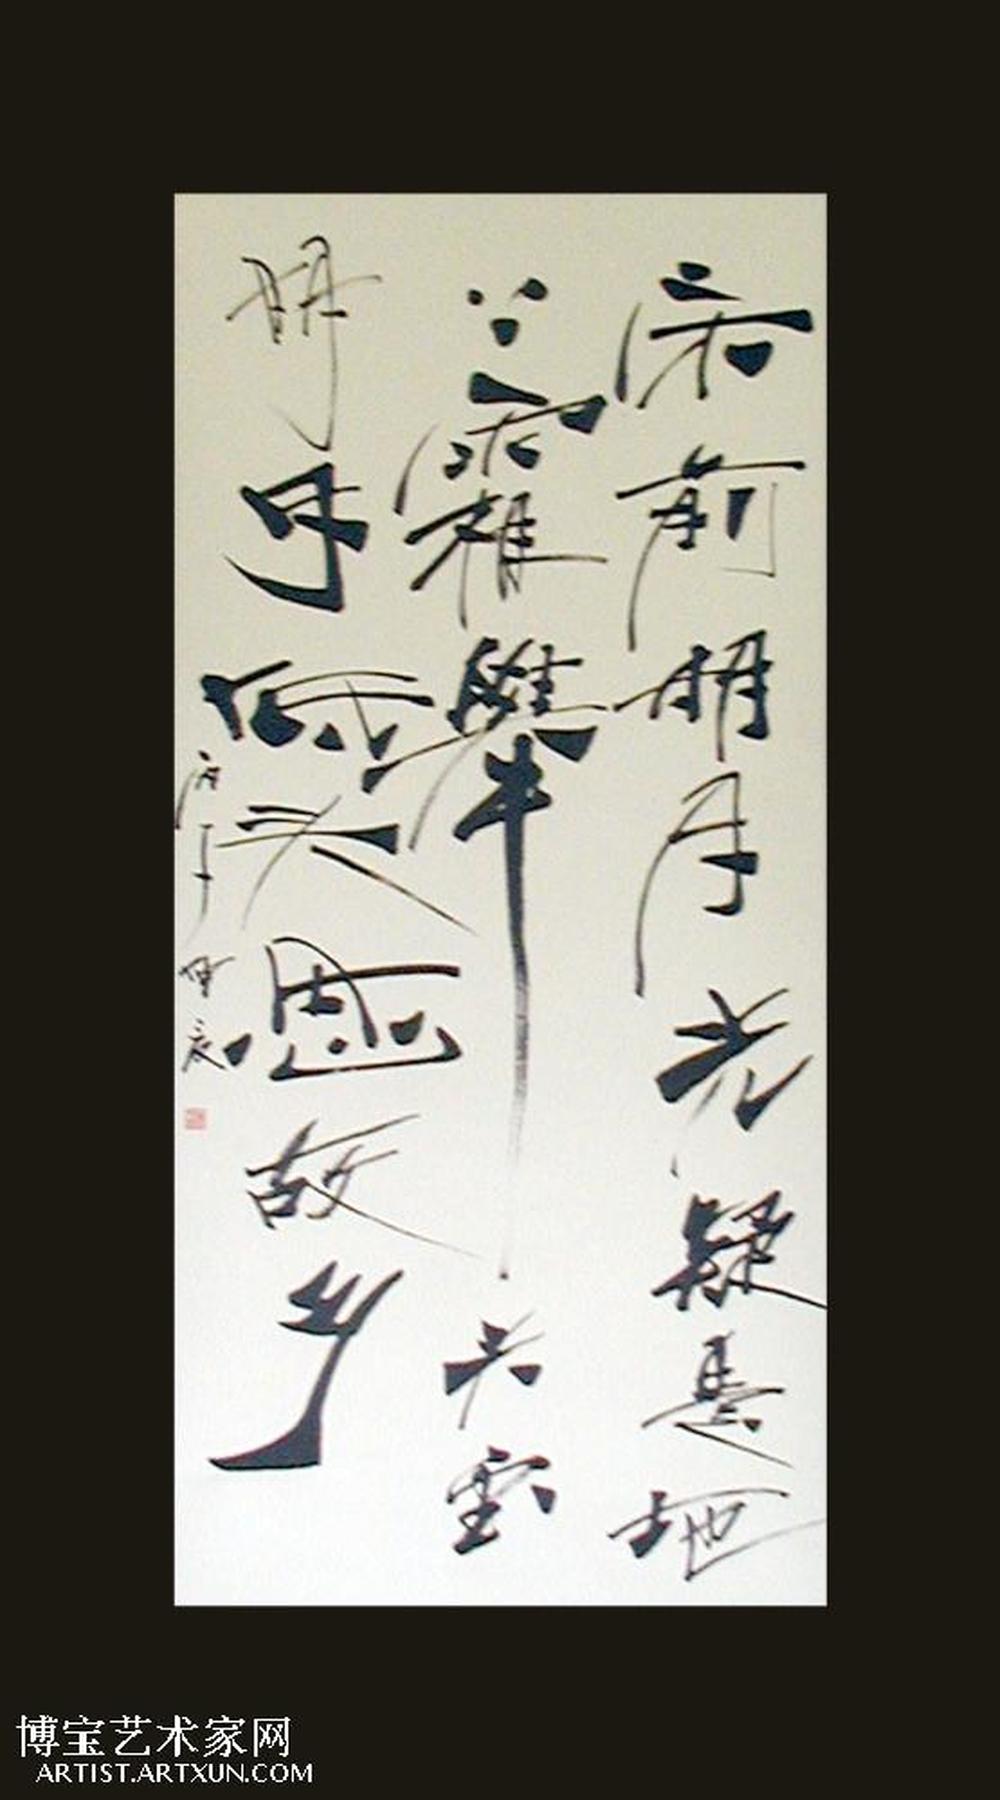 床前明月光疑是地
上霜舉头望
明月低头思故乡
博宝艺术家网
ARTIST.ARTXUN.COM